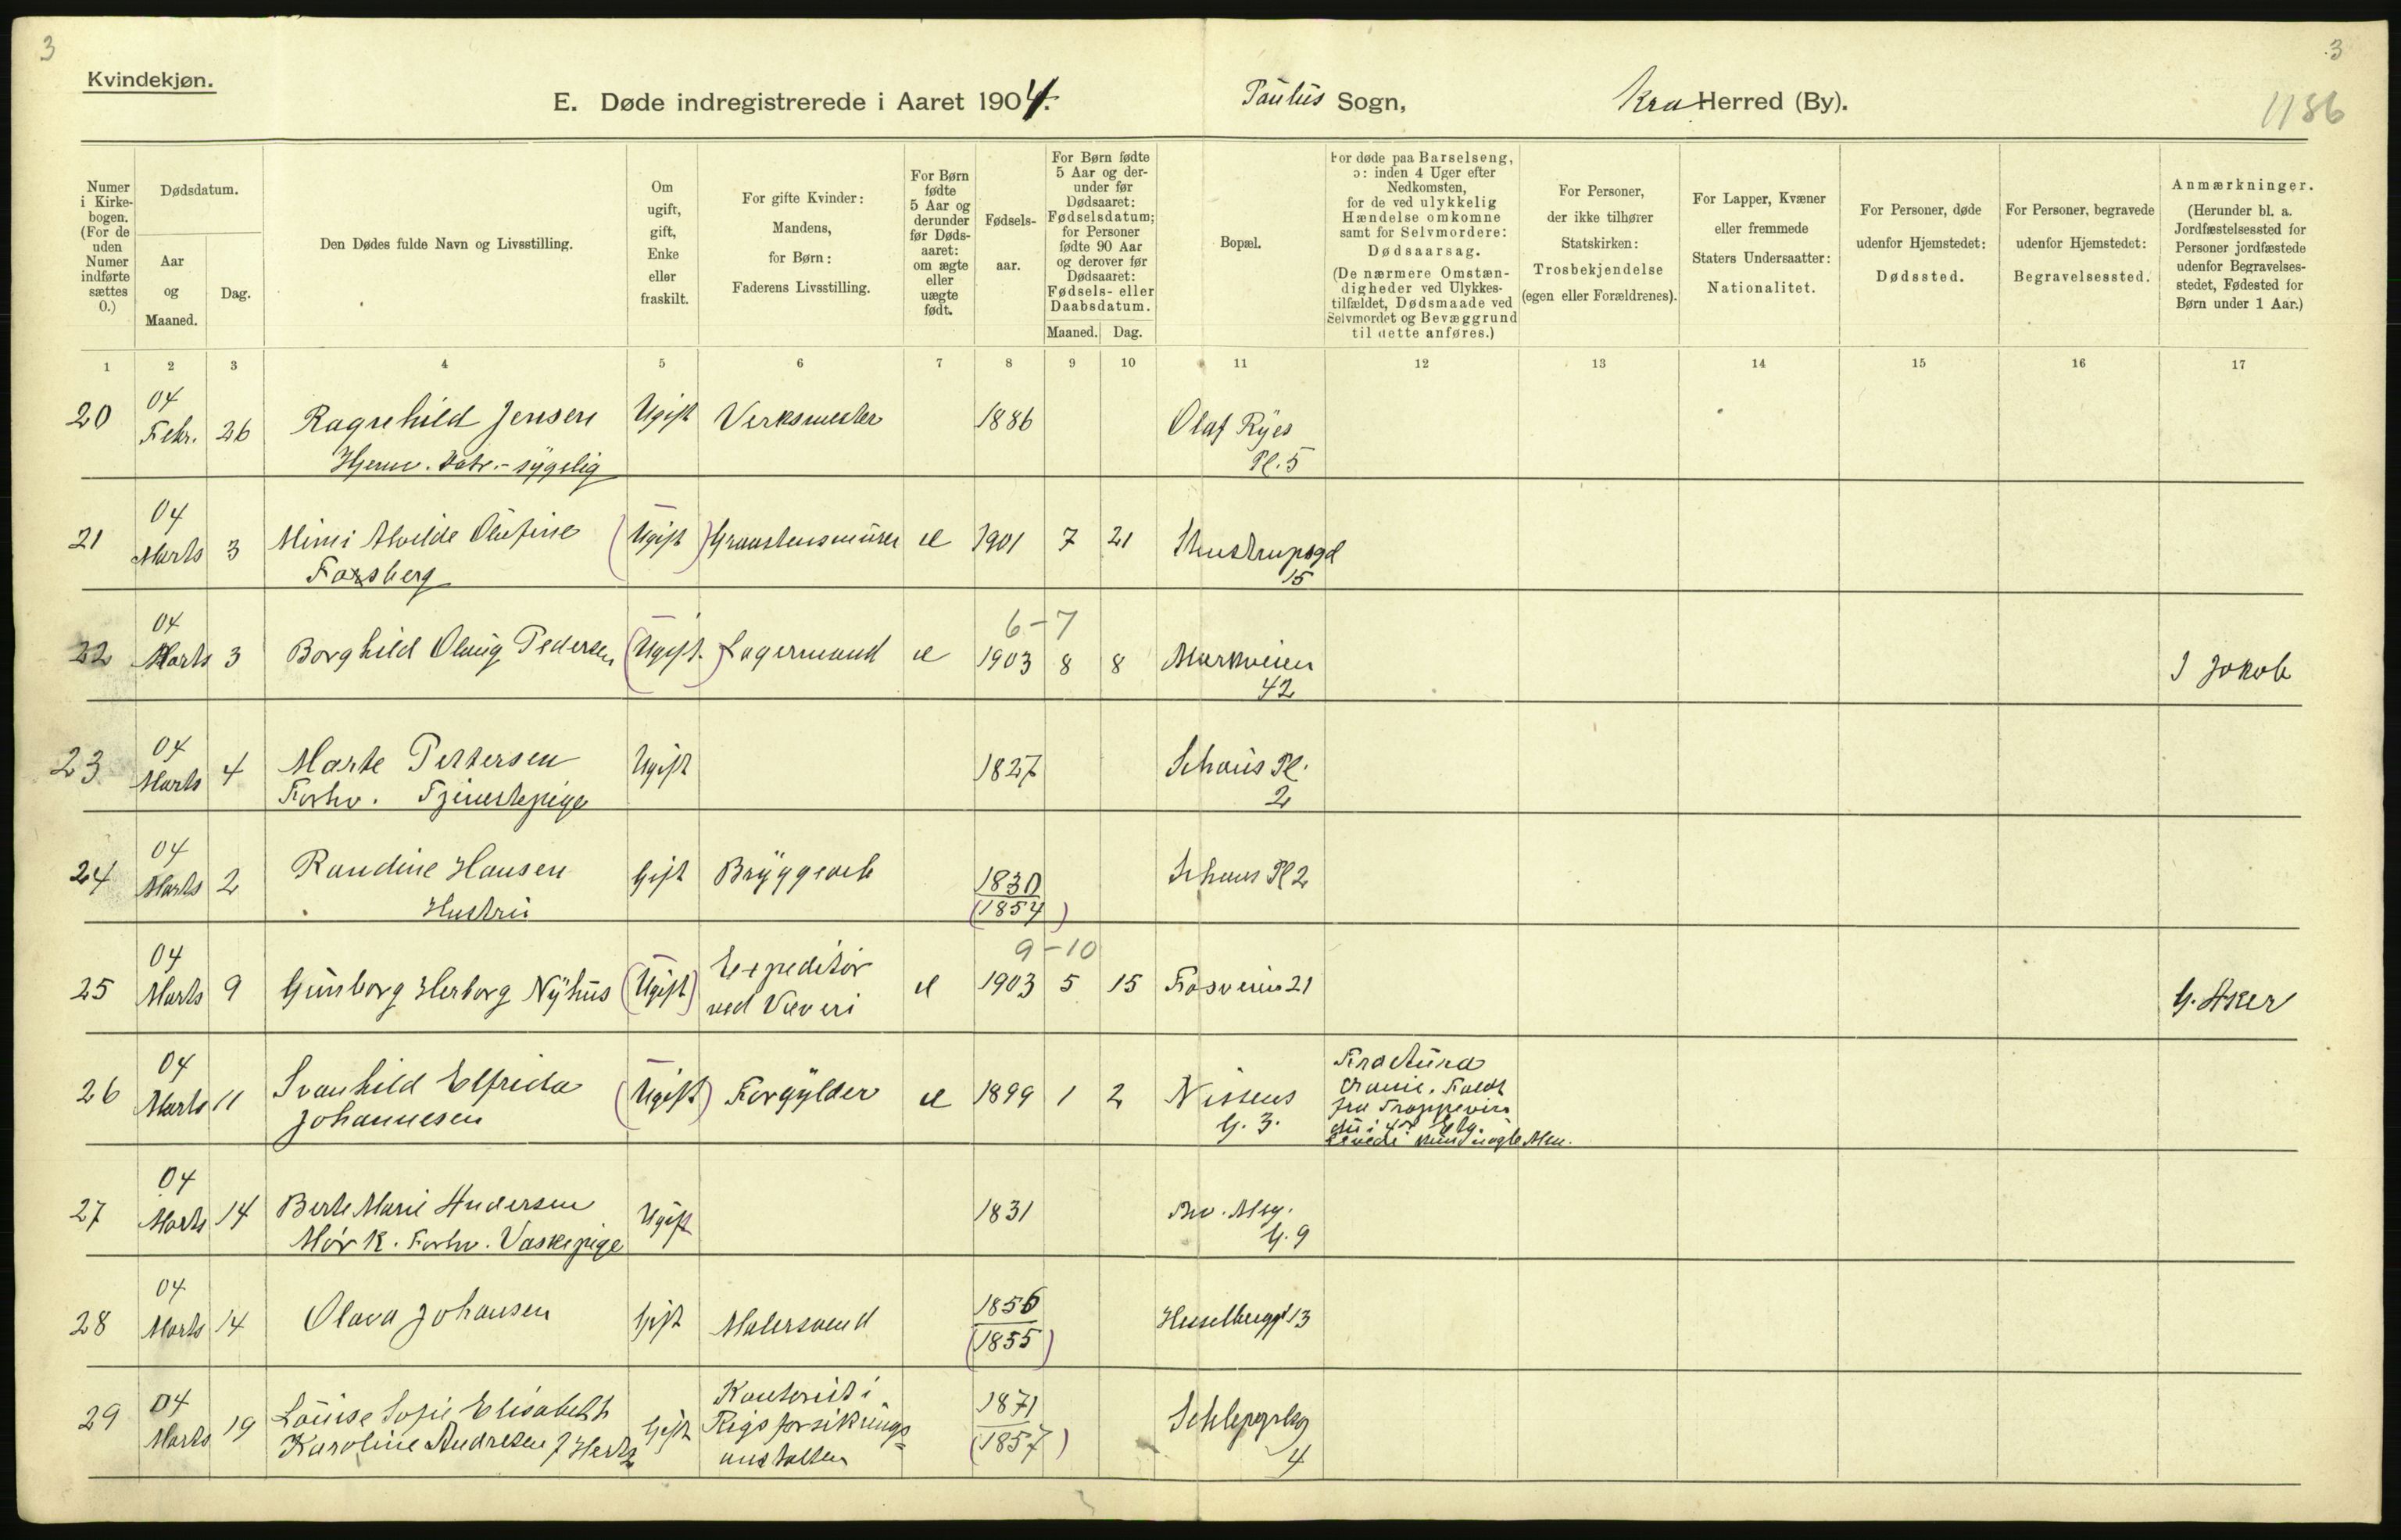 3
3
Kvindekjøn.
E. Døde indregistrerede i Aaret 1904.
Paulus Sogn,
Kra Herred (By).
1186
Numer i Kirkebogen. (For de uden Numer indførte sættes 0.)
Dødsdatum.
Aar og Maaned.
Dag.
Den Dødes fulde Navn og Livsstilling.
Om ugift, gift, Enke eller fraskilt.
For gifte Kvinder: Mandens, for Børn: Faderens Livsstilling.
For Børn fødte 5 Aar og derunder før Dødsaaret: om ægte eller uægte født.
Fødselsaar.
For Børn fødte 5 Aar og derunder før Dødsaaret: Fødselsdatum; for Personer fødte 90 Aar og derover før Dødsaaret: Fødsels- eller Daabsdatum.
Maaned. Dag.
Bopæl.
For døde paa Barselseng, ɔ: inden 4 Uger efter Nedkomsten, for de ved ulykkelig Hændelse omkomne samt for Selvmordere: Dødsaarsag. (De nærmere Omstændigheder ved Ulykkestilfældet, Dødsmaade ved Selvmordet og Bevæggrund til dette anføres.)
For Personer, der ikke tilhører Statskirken: Trosbekjendelse (egen eller Forældrenes).
For Lapper, Kvæner eller fremmede Staters Undersaatter: Nationalitet.
For Personer, døde udenfor Hjemstedet: Dødssted.
For Personer, begravede udenfor Hjemstedet: Begravelsessted.
Anmærkninger. (Herunder bl. a. Jordfæstelsessted for Personer jordfæstede udenfor Begravelsesstedet, Fødested for Børn under 1 Aar.)
1 2 3 4 5 6 7 8 9 10 11 12 13 14 15 16 17
20 04 Febr. 26 Ragnhild Jensen Ugift Verksmester 1886 Olaf Ryes Pl. 5
Hjemv. Datr.- sygelig
21 04 Marts 3 Mimi Alvilde Olufine Forsberg (Ugift) Graastensmurer æ 1901 7 21 Thustrupsgd 15
6-7
22 04 Marts 3 Borghild Olaug Pedersen (Ugift.) Lagermand æ 1903 8 8 Markveien 42 J Jakob
23 04 Marts 4 Marte Pettersen Ugift 1827 Schous Pl. 2
Forhv. Tjenestepige
24 04 Marts 2 Randine Hansen Gift Bryggearb 1830 (1854) Schous Pl 2
Hustru
9-10
25 04 Marts 9 Gunborg Herborg Nyhus (Ugift) Expeditør ved Væveri æ 1903 5 15 Fosveien 21 G. Aker
26 04 Marts 11 Svanhild Elfrida Johannesen (Ugift) Forgylder æ 1899 1 2 Nissens G. 3.
Fractura cranie. Faldt fra Trappevin
du i 4de Etg.
Levede kun nogle Min.
27 04 Marts 14 Berte Marie Andersen Ugift 1831 Thv. Mey. G. 9
Mørk. Forhv. Vaskepige
28 04 Marts 14 Olava Johansen Gift Malersvend 1856 (1855) Hesselberggd 13
29 04 Marts 19 Louise Sofie Elisabeth Karoline Andresen f Hertz Gift Kontorist i Rigsforsikrings=anstalten 1871 (1857) Schleppegrg 4